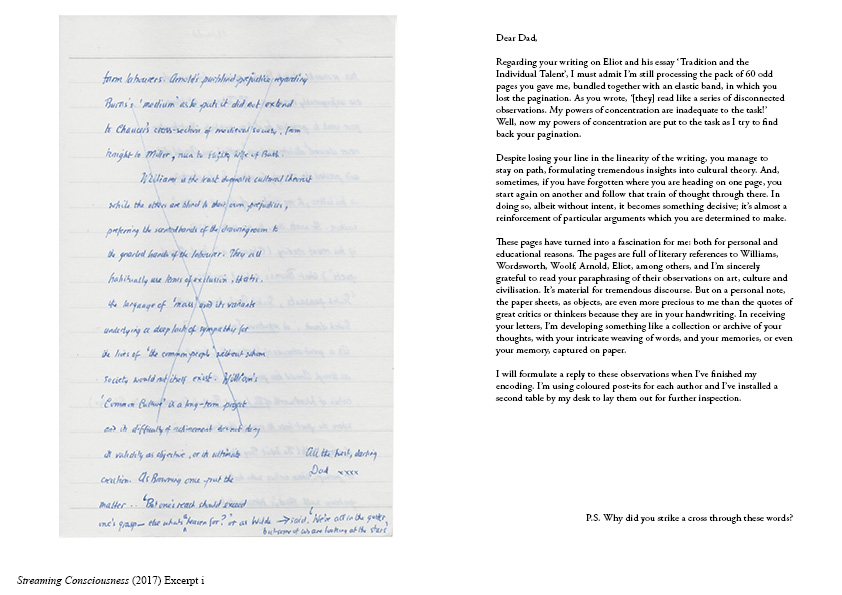 farm labourers. Arnold's puckland prejudice regarding
Burns's 'medium' as he puts it did not extend
to Chaucer's cross-section of medieval society, from
knight to Miller, nun to Wife of Bath.
William is the least dogmatic cultural theorist
while the others are blind to their own prejudices,
preferring the scented hands of the drawing room to
the gnarled hands of the labourer. They all
habitually use terms of exclusion, that is,
the language of 'mass' and its variants
underlying a deep lack of sympathy for
the lives of 'the common people' without whom
society would not itself exist. William's
'Common Culture' is a long-term project
and its difficulty of refinement does not deny
its validity as objective, or its ultimate
creation. As Browning once put the
matter .. 'But one's reach should exceed
one's grasp – else what's heaven for?' or as Wilde → said, 'We're all in the gutter
but some of us are looking at the stars'
All the best, darling
Dad xxxx
Dear Dad,
Regarding your writing on Eliot and his essay 'Tradition and the
Individual Talent', I must admit I'm still processing the pack of 60 odd
pages you gave me, bundled together with an elastic band, in which you
lost the pagination. As you wrote, '[they] read like a series of disconnected
observations. My powers of concentration are inadequate to the task!'
Well, now my powers of concentration are put to the task as I try to find
back your pagination.
Despite losing your line in the linearity of the writing, you manage to
stay on path, formulating tremendous insights into cultural theory. And,
sometimes, if you have forgotten where you are heading on one page, you
start again on another and follow that train of thought through there. In
doing so, albeit without intent, it becomes something decisive; it's almost a
reinforcement of particular arguments which you are determined to make.
These pages have turned into a fascination for me: both for personal and
educational reasons. The pages are full of literary references to Williams,
Wordsworth, Woolf, Arnold, Eliot, among others, and I'm sincerely
grateful to read your paraphrasing of their observations on art, culture and
civilisation. It's material for tremendous discourse. But on a personal note,
the paper sheets, as objects, are even more precious to me than the quotes of
great critics or thinkers because they are in your handwriting. In receiving
your letters, I'm developing something like a collection or archive of your
thoughts, with your intricate weaving of words, and your memories, or even
your memory, captured on paper.
I will formulate a reply to these observations when I've finished my
encoding. I'm using coloured post-its for each author and I've installed a
second table by my desk to lay them out for further inspection.
P.S. Why did you strike a cross through these words?
Streaming Consciousness (2017) Excerpt i